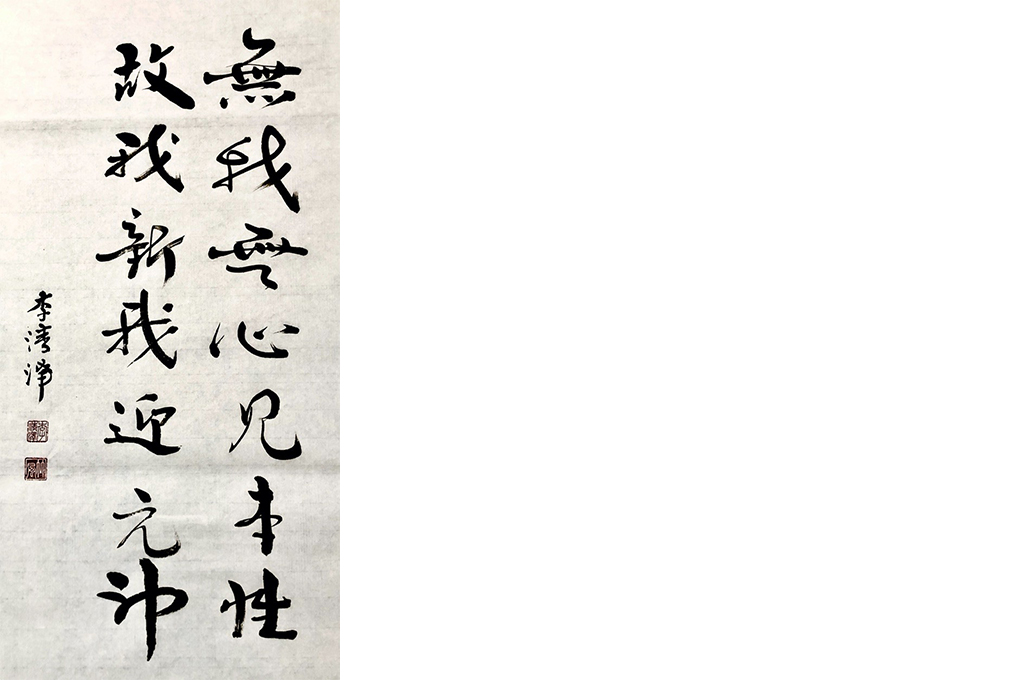 無我無心見本性
故我新我迎元神
李清淨